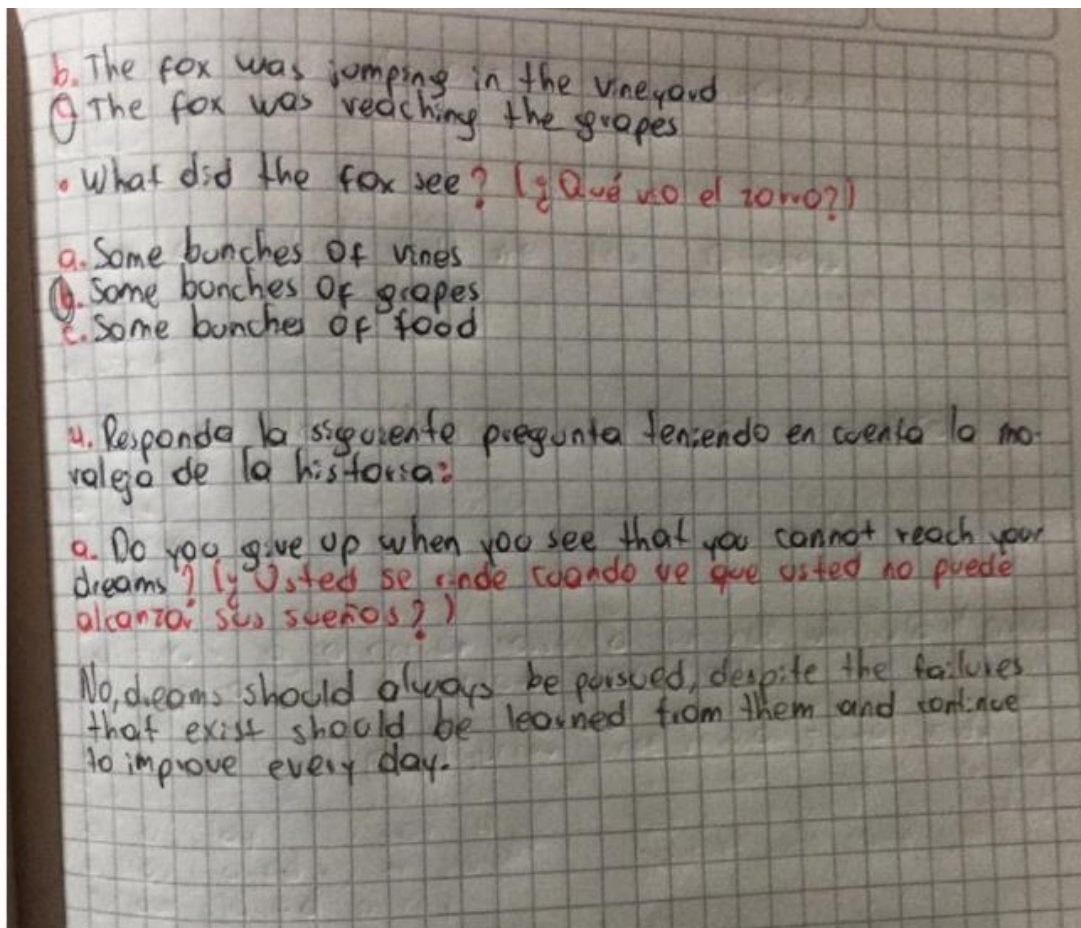 b. The fox was jomping in the vineyard
c. The fox was reaching the grapes
• What did the fox see? (¿Qué vio el zorro?)
a. Some bunches of vines
b. Some bunches of grapes
c. Some bunches of food
4. Responda la siguiente pregunta teniendo en cuenta la mo-
raleja de la historia:
a. Do you give up when you see that you cannot reach your
dreams? (¿Usted se rinde cuando ve que usted no puede
alcanzar sus sueños?)
No, dreams should always be pursued, despite the failures
that exist should be learned from them and continue
to improve every day.